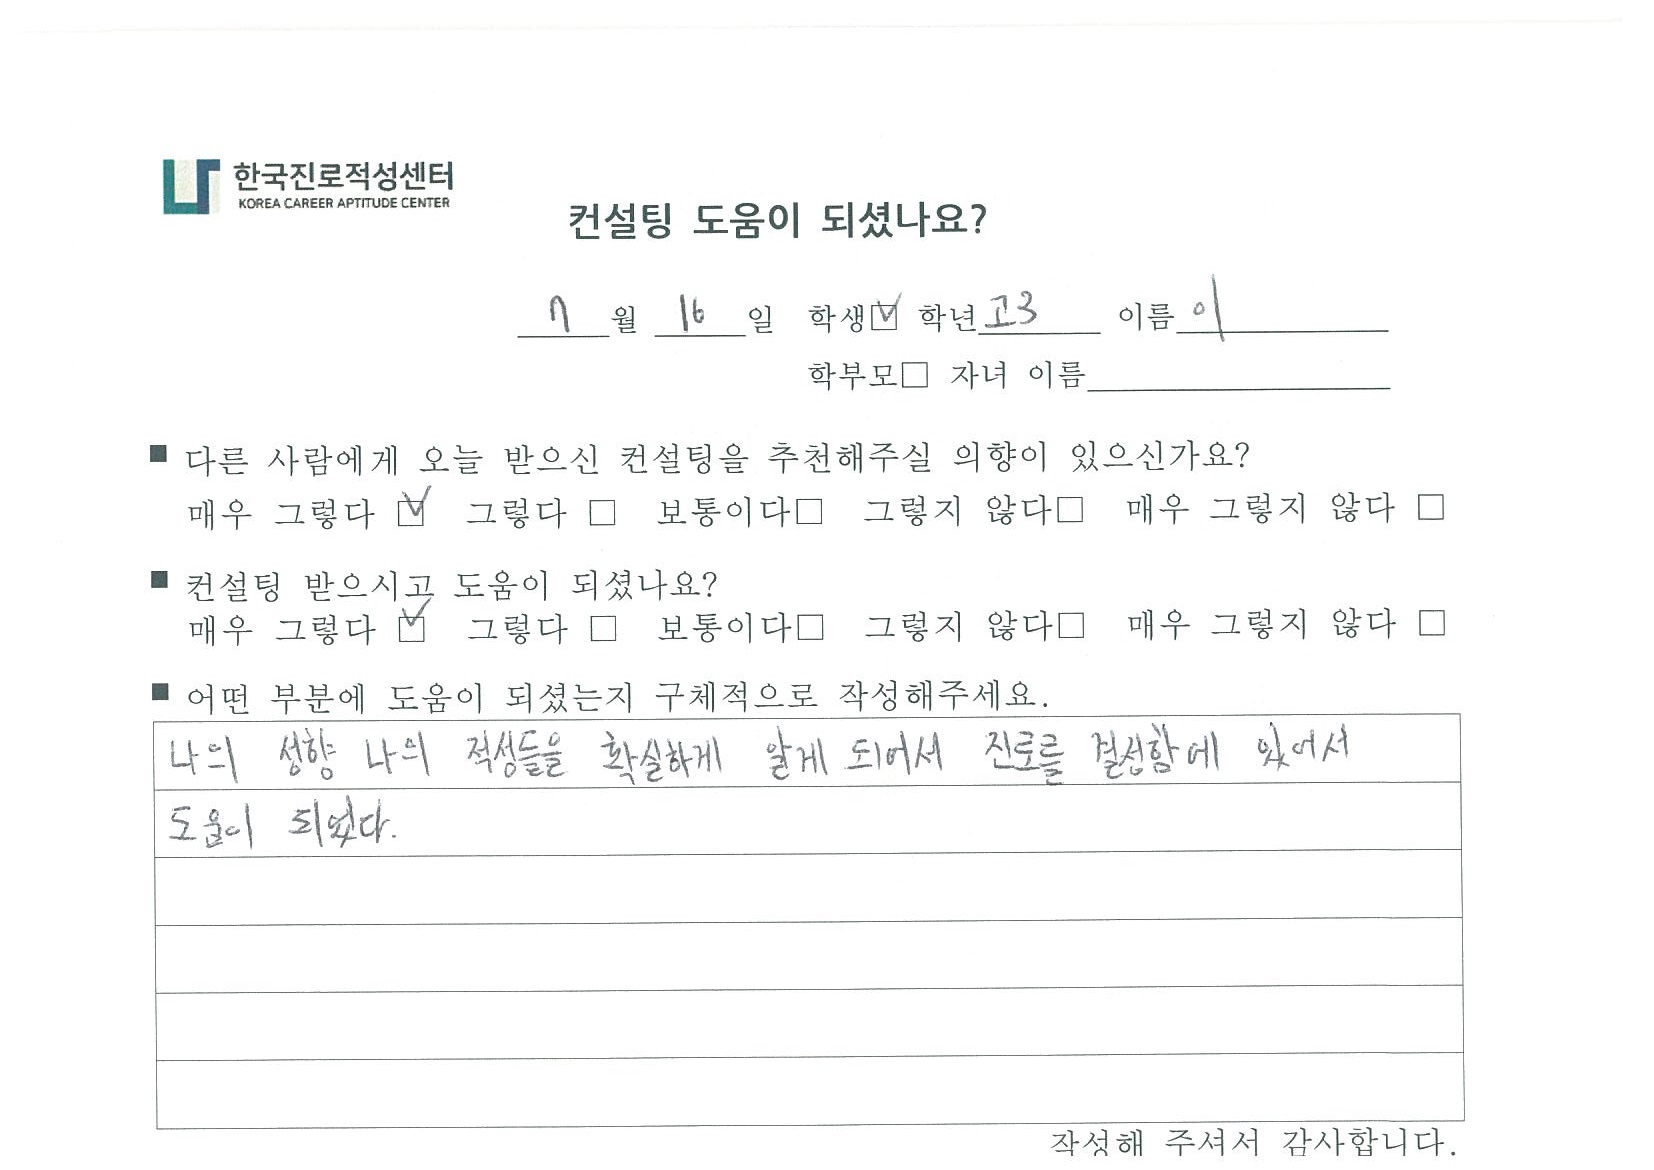 한국진로적성센터
KOREA CAREER APTITUDE CENTER
컨설팅 도움이 되셨나요?
7월 16일 학생☑ 학년 고3 이름 이
학부모□ 자녀 이름
■ 다른 사람에게 오늘 받으신 컨설팅을 추천해주실 의향이 있으신가요?
매우 그렇다 ☑ 그렇다 □ 보통이다□ 그렇지 않다□ 매우 그렇지 않다 □
■ 컨설팅 받으시고 도움이 되셨나요?
매우 그렇다 ☑ 그렇다 □ 보통이다□ 그렇지 않다□ 매우 그렇지 않다 □
■ 어떤 부분에 도움이 되셨는지 구체적으로 작성해주세요.
나의 성향 나의 적성들을 확실하게 알게 되어서 진로를 결성함에 있어서
도움이 되었다.
작성해 주셔서 감사합니다.